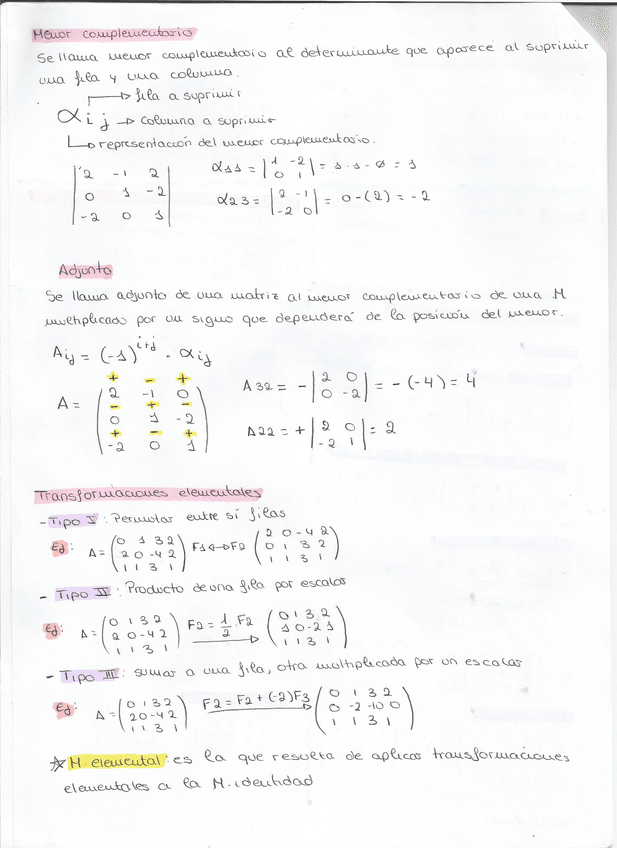 Menor complementario
Se llama menor complementario al determinante que aparece al suprimir
una fila y una columna.
→ fila a suprimir
α i j → columna a suprimir
→ representación del menor complementario.
| 2 -1 2 |
| 0 1 -2 |
| -2 0 1 |
α11 = | 1 -2 | = 1·1-0 = 1
| 0 1 |
α23 = | 2 -1 | = 0-(2) = -2
| -2 0 |
Adjunto
Se llama adjunto de una matriz al menor complementario de una M
multiplicado por un signo que dependerá de la posición del menor.
Aij = (-1)^i+j · αij
A =
+ - +
2 -1 0
- + -
0 1 -2
+ - +
-2 0 1
A32 = - | 2 0 | = -(-4) = 4
| 0 -2 |
A22 = + | 2 0 | = 2
| -2 1 |
Transformaciones elementales
- Tipo I: Permutar entre sí filas
Ej: A = ( 0 1 3 2 ) F1↔F2 ( 2 0 -4 2 )
( 2 0 -4 2 ) ( 0 1 3 2 )
( 1 1 3 1 ) ( 1 1 3 1 )
- Tipo II: Producto de una fila por escalar
Ej: A = ( 0 1 3 2 ) F2 = 1/2 · F2 → ( 0 1 3 2 )
( 2 0 -4 2 ) ( 1 0 -2 1 )
( 1 1 3 1 ) ( 1 1 3 1 )
- Tipo III: sumar a una fila, otra multiplicada por un escalar
Ej: A = ( 0 1 3 2 ) F2 = F2 + (-2)F3 → ( 0 1 3 2 )
( 2 0 -4 2 ) ( 0 -2 -10 0 )
( 1 1 3 1 ) ( 1 1 3 1 )
☆ M. elemental: es la que resulta de aplicar transformaciones
elementales a la M. identidad